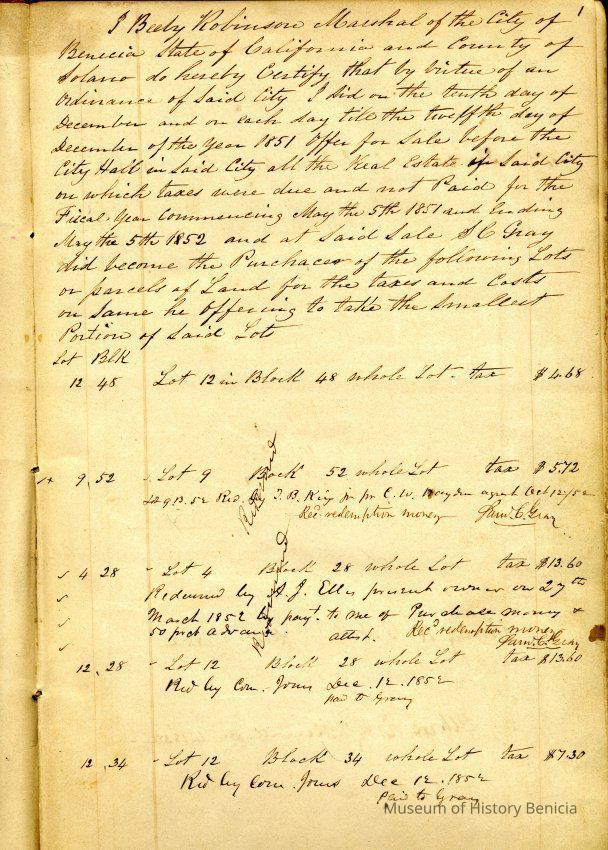 1
I Beeby Robinson Marshal of the City of
Benicia State of California and County of
Solano do hereby Certify that by Virtue of an
Ordinance of Said City I did on the tenth day of
December and on each day till the twelfth day of
December of the Year 1851 Offer for Sale before the
City Hall in Said City all the Real Estate in Said City
on which taxes were due and not Paid for the
Fiscal Year Commencing May the 5th 1851 and Ending
May the 5th 1852 and at Said Sale S C Gray
did become the Purchaser of the following Lots
or parcels of Land for the taxes and Costs
on Same he Offering to take the Smallest
Portion of Said Lots
Lot Blk
12 48 Lot 12 in Block 48 whole Lot - tax $4.68
9 52 Lot 9 Block 52 whole Lot tax $5.72
Redeemed
Lot 9 B. 52 Red. J. B. King pr C. W. agent Oct 12/52
Recd redemption money Saml. C. Gray
4 28 Lot 4 Block 28 whole Lot tax $13.60
Redeemed
Redeemed by A. J. Ellis present owner on 27th
March 1852 by payt. to me of Purchase money &
50 prct advance. attst. Recd redemption money
Saml. C. Gray
12 28 Lot 12 Block 28 whole Lot tax $13.60
Red by Com. Jones Dec. 12. 1852
Paid to Gray
12 34 Lot 12 Block 34 whole Lot tax $7.30
Red by Com. Jones Dec 12. 1852
Paid to Gray
Museum of History Benicia